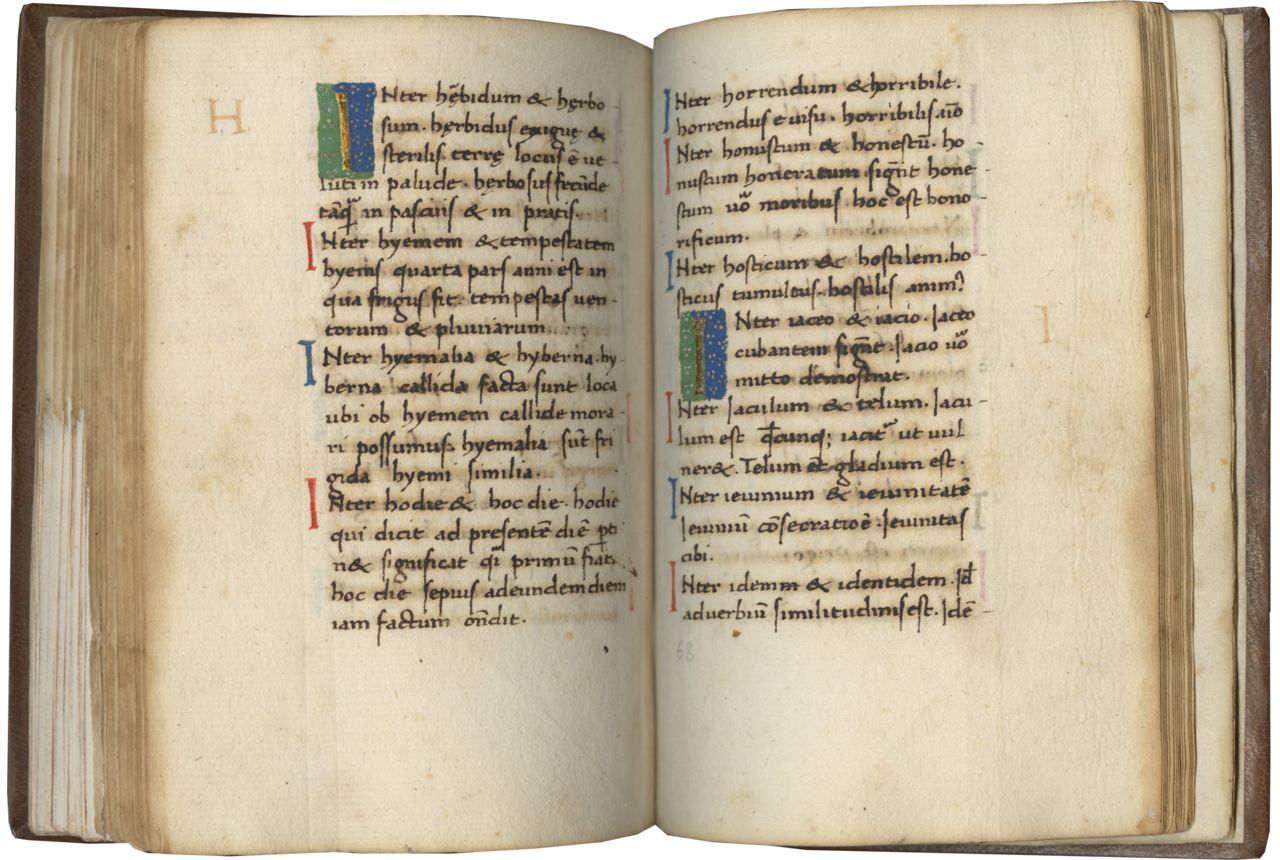 H
INter hębidum & hęrbo
sum. hęrbidus exiguę &
sterilis terrę locus ē ue-
luti in palude. hęrbosus fecūde
tāq̃ in pascuis & in pratis.
INter hyemem & tempestatem
hyems quarta pars anni est in
qua frigus fit. tempestas uen-
torum & pluuiarum.
INter hyemalia & hyberna. hy
berna callida facta sunt loca
ubi ob hyemem callide mora
ri possumus. hyemalia sūt fri
gida hyemi similia.
INter hodie & hoc die. hodie
qui dicit ad presentē diē
n& significat primū fiat.
hoc die sepius ad eundem diem
iam factum ōndit.
INter horrendum & horribile.
horrendus ē uisu. horribilis aīo
INter honustum & honestū. ho
nustum honeratum sign̄t hone-
stum uō moribus hoc est hono-
rificum.
INter hosticum & hostilem. ho
sticus tumultus. hostilis
I
INter iaceo & iacio. Jaceo
cubantem sign̄t. Jacio uō
mitto demostrat.
INter Jaculum & telum. Jacu-
lum est iacit᷑ ut uul
ner&. Telum et gladium est.
INter ieiunium & ieiunitatē
Jeiuniū cōsecratio ē. Jeiunitas
cibi.
INter idem & identidem. Id
aduerbiū similitudinis est. Idē-
68